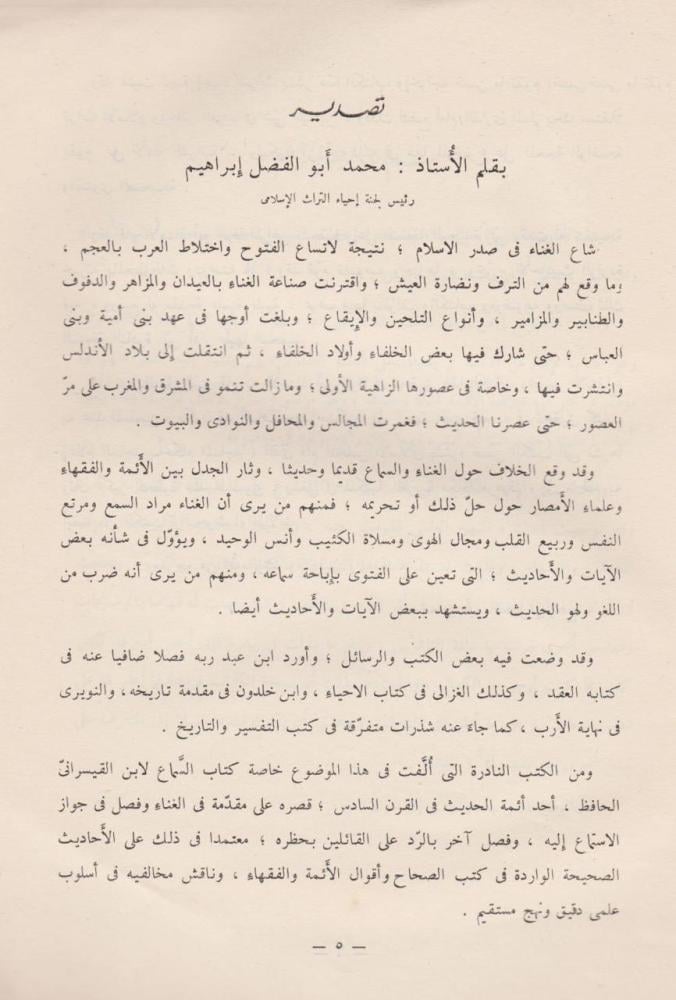 تصدير
بقلم الأُستاذ : محمد أَبو الفضل إِبراهيم
رئيس لجنة إحياء التراث الإسلامى
شاع الغناء فى صدر الاسلام ؛ نتيجة لاتساع الفتوح واختلاط العرب بالعجم ،
وما وقع لهم من الترف ونضارة العيش ؛ واقترنت صناعة الغناءِ بالعيدان والمزاهر والدفوف
والطنابير والمزامير ، وأَنواع التلحين والإِيقاع ؛ وبلغت أوجها فى عهد بنى أمية وبنى
العباس ؛ حتى شارك فيها بعض الخلفاءِ وأولاد الخلفاءِ ، ثم انتقلت إِلى بلاد الأَندلس
وانتشرت فيها ، وخاصة فى عصورها الزاهية الأولى ؛ ومازالت تنمو فى المشرق والمغرب على مرّ
العصور ؛ حتى عصرنا الحديث ؛ فغمرت المجالس والمحافل والنوادى والبيوت .
وقد وقع الخلاف حول الغناءِ والسماع قديما وحديثا ، وثار الجدل بين الأَئمة والفقهاءِ
وعلماءِ الأَمصار حول حلّ ذلك أو تحريمه ؛ فمنهم من يرى أن الغناء مراد السمع ومرتع
النفس وربيع القلب ومجال الهوى ومسلاة الكئيب وأنس الوحيد ، ويؤوّل فى شأنه بعض
الآيات والأَحاديث ؛ التى تعين على الفتوى بإِباحة سماعه ، ومنهم من يرى أنه ضرب من
اللغو ولهو الحديث ، ويستشهد ببعض الآيات والأَحاديث أيضا .
وقد وضعت فيه بعض الكتب والرسائل ؛ وأورد ابن عبد ربه فصلا ضافيا عنه فى
كتابه العقد ، وكذلك الغزالى فى كتاب الاحياءِ ، وابن خلدون فى مقدمة تاريخه ، والنويرى
فى نهاية الأَرب ، كما جاءَ عنه شذرات متفرّقة فى كتب التفسير والتاريخ .
ومن الكتب النادرة التى أُلِّفت فى هذا الموضوع خاصة كتاب السَّماع لابن القيسرانىّ
الحافظ ، أحد أئمة الحديث فى القرن السادس ؛ قصره على مقدّمة فى الغناءِ وفصل فى جواز
الاستماع إِليه ، وفصل آخر بالرّد على القائلين بحظره ؛ معتمدا فى ذلك على الأَحاديث
الصحيحة الواردة فى كتب الصحاح وأقوال الأَئمة والفقهاءِ ، وناقش مخالفيه فى أسلوب
علمى دقيق ونهج مستقيم .
— ٥ —